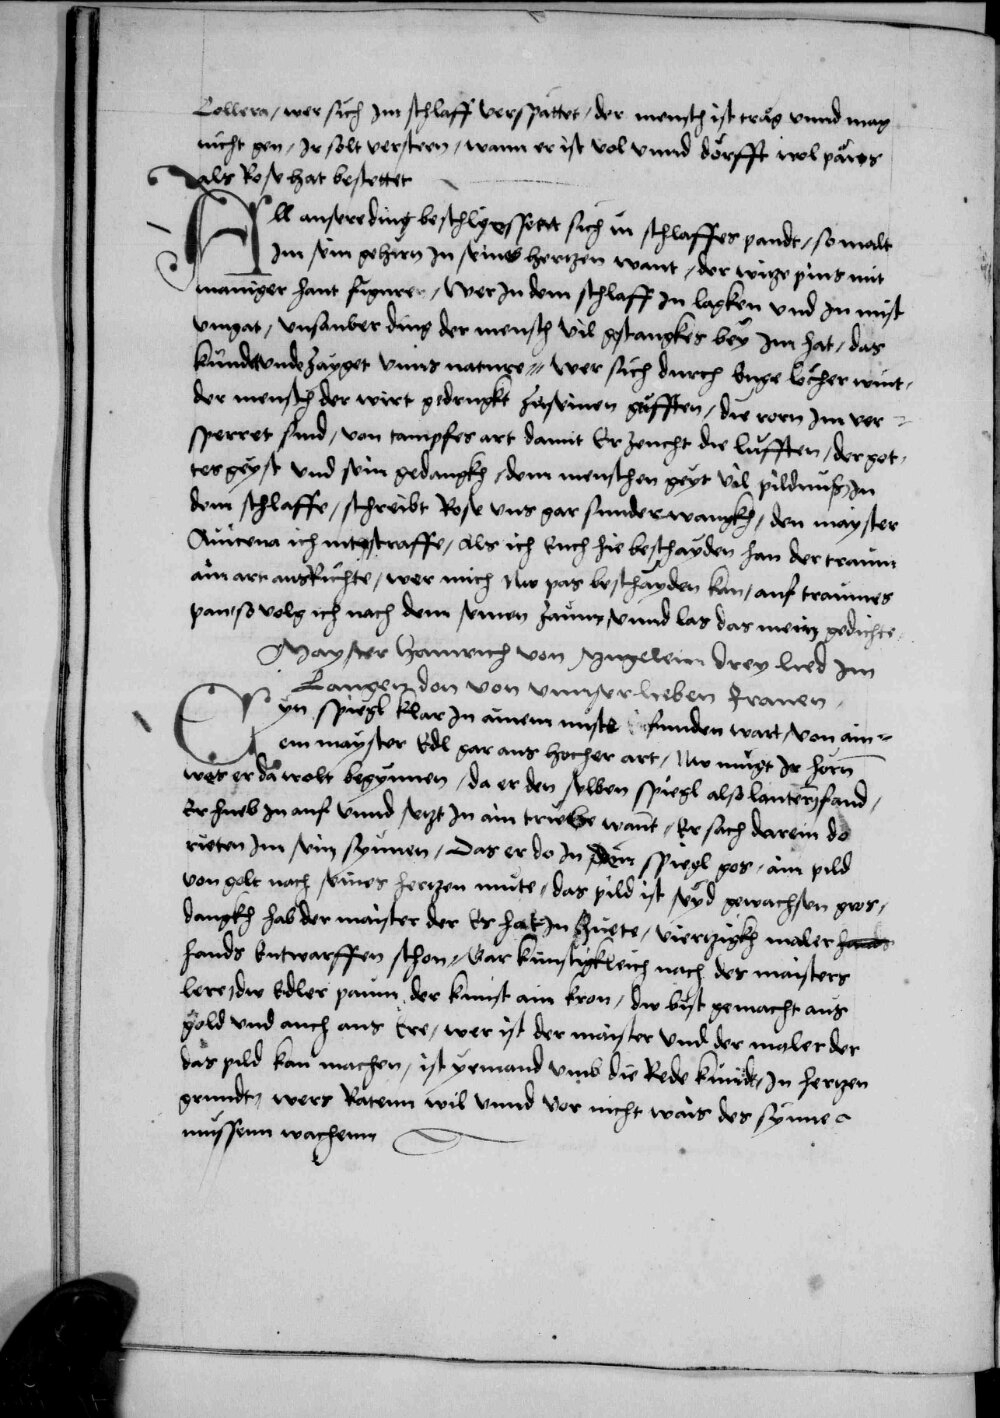 Collera / wer sich im schlaff verspattet / der mensch ist träg vnnd mag
nicht gen / Ir solt versteen / wann er ist vol vnnd dörfft wol päwes
als Rose hat bestettet
All vnsere ding beschliessent sich in schlaffes pandt / so malt
Im sein gehirn In seines hertzen want / der witze pins mit
maniger hant figurer / Wer In dem schlaff In lagken vnd In mist
vmgat / vnsauber ding der mensch vil gstangkes bey Im hat / das
kündet vnde zayget vnns nature // wer sich durch Enge löcher wint /
der mensch der wirt gedrugkt zuseinen güfften / die rorn Im ver
sperret sind / von tampfes art damit Er zeucht die lufften / der got
tes geyst vnd sein gedangkh / dem menschen geyt vil pildnuss In
dem schlaffe / schreibt Rose vns gar sunder wangkh / den mayster
Auicena ich nit straffe / Als ich Euch hie beschayden han der traum
ain art ausRichte / wer mich Nw pas beschayden kan / auf traumes
pan / so volg ich nach dem seinen zaum / vnnd las das mein gedichte
Mayster Hainrich von Mugelein drey lied Im
Langen don von vnnser lieben Frauen /
Eyn spiegl klar In ainem miste funden wart / von ain
em mayster Edl gar aus hocher art / Nw mügt Ir hörn
wes er da wolt begynnen / da er den selben spiegl also lauter fand /
Er hueb In auf vnnd setzt In ain triebe want / Er sach darein do
rieten Im sein synnen / Das er do In den spiegl gos / ain pild
von golt nach seines hertzen mute / das pild ist seyd gewachsen gros /
dangkh hab der maister der Es hat In huete / viertzigkh maler
hands Entwarffen schon // Gar künstigkleich nach des maisters
lere / die Edler paum der kunst ain kron / die bist gemacht aus
gold vnd auch aus Ere / wer ist der maister vnd der maler der
das pild kan machen / ist yemand vmb die Rede kundt / In hertzen
grundt / wers Ratenn wil vnnd vor nicht wais des synne
müssenn wachenn